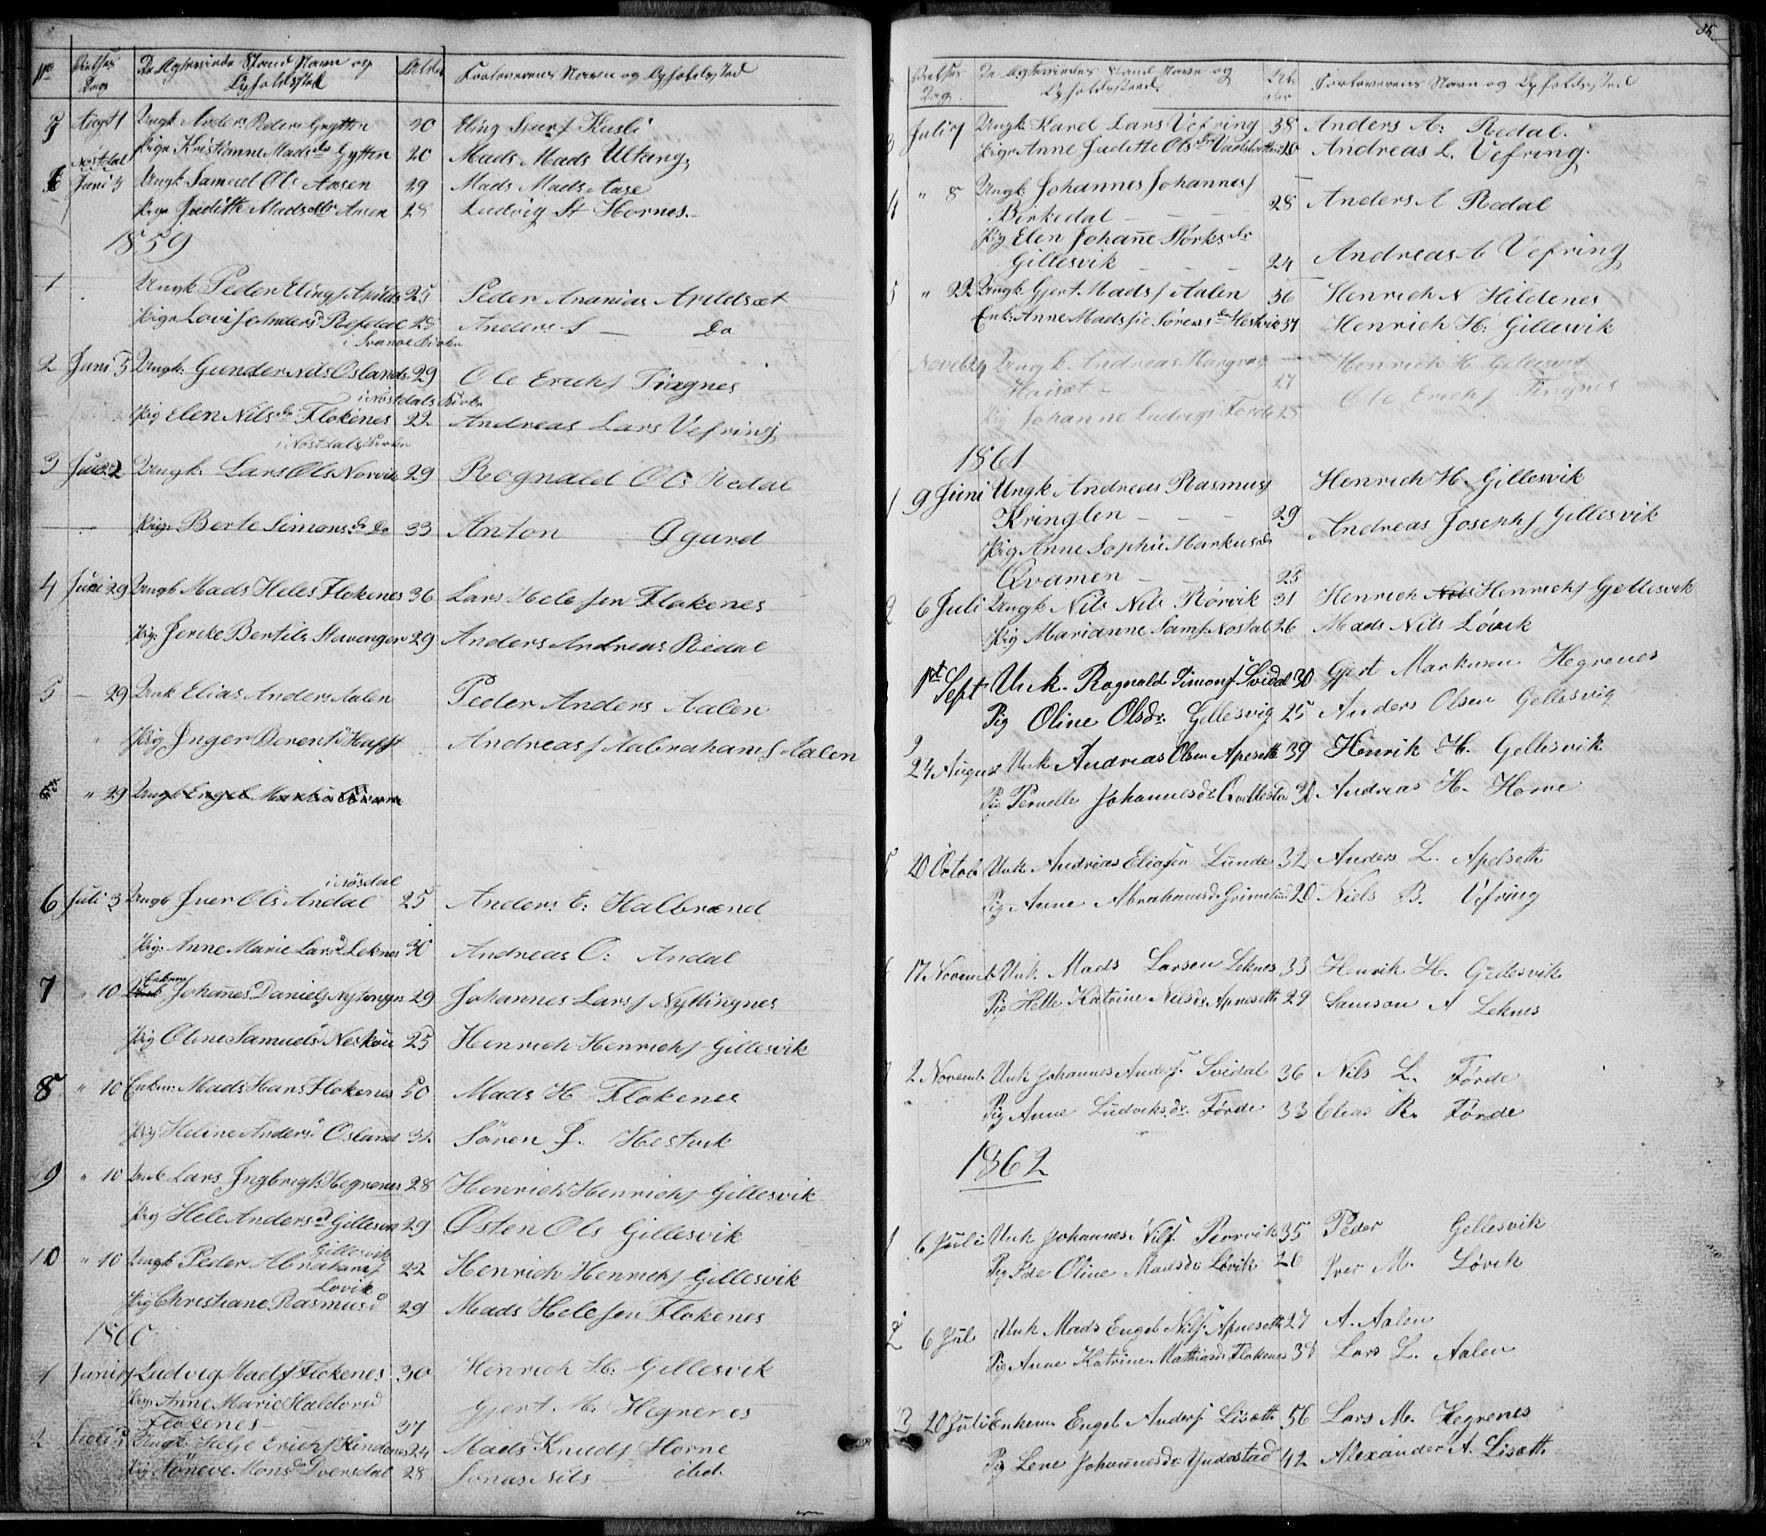 No Vielses Dag De Egtevirede Stand Navn og Opholdssted Alder Forloverens Navn og Opholdssted
7 August 1 Ungk Anders Peders Grytten 30 Eling Sjurs Kusli
Pige Kristianne Madsdr Gytten 20 Mads Mads Ultang,
Nøstdal
8 Juni 4 Ungk Samuel Ols Aasen 29 Mads Mads Aase
Pige Judithe Madsdtr Aasen 28 Ludvig St Hornes.
1859
1 Ungk Peder Elings Apilds 25 Peder Ananias Apildsæt
Pige Lovise Anders Refsdal 25 Anders S — Do
i Svanøe Kirke
2 Juni 5 Ungk: Gunder Nils Oslands 29 Ole Erichs Tingnes
i Nøstdals Kirke
Pig Elen Nilsdr Flokenes 22 Andreas Lars Vefring
i Nøstdals Kirke
3 Juni 22 Ungk: Lars Ols Norvik 29 Rognald Ols Redal
Pige Berte Simonsdr Do 33 Anton Agaard
4 Juni 29 Ungk Mads Heles Flokenes 36 Lars Helesen Flokenes
Pig: Jerike Bertils Stavenger 29 Anders Andreas Riedal
5 — 29 Unk Elias Anders Aalen Peder Anders Aalen
Pig Inger Berents Andreas Aabrahams Aalen
6 " 29 Ungk Engel
i Nøsdal
6 Juli 3 Ungk Iver Ols Andal 25 Anders E: Halbrænd
Pig: Anne Marie Larsd Leknes 30 Andreas O: Andal
7 " 10 Enkem Johannes Daniels Nytingnes 29 Johannes Lars Nyttingnes
Pig Oline Samuelsd Neskou 25 Henrich Henrichs Gillesvik
8 " 10 Enkem: Mads Hans Flokenes 50 Mads H Flokenes
Pig Heline Andersd Osland 32 Sören J. Hestvik
9 " 10 Unk Lars Ingbrigts Hegrenes 28 Henrich Henrichs Gillesvik
Pig Hele Andersd Gillesvik 29 Østen Ols Gillesvik
Gillesvik
10 " 10 Ungk Peder Abrahams 22 Henrich Henrichs Gillesvik
Lovik
Pig Christiane Rasmusd 29 Mads Helesen Flokenes
1860
1 Juni Ludvig Mads Flokenes 30 Henrich H: Gillesvik
Pige Anne Marie Haldorsd Gjert M. Hegrenes
Flokenes — 37
2 Juli 5 Ungk: Helje Erichs Hindenes 24 Mads Knuds Horne
Pig Sÿneve Monsd Dversdal 28 Jonas Nils ibid
35.
Vielses Dag De Egtevirdes Stand Navn og Opholdssteed Alder Forloverens Navn og Opholdssted
3 Juli 1 Ungk Karel Lars Vefring 38 Anders A: Redal.
Pige Anne Judithe Olsdr 25 Andreas L. Vefring.
4 " 8 Ungk: Johannes Johannes
Birkedal — — — 28 Anders A Redal
Pig Elen Johanne Størksdr
Gillesvik — — 24 Andreas A Vefring
5 " 22 Ungk Gjert Mads Aalen 36 Henrich N Hildenes
Enk: Anne Madssie Sörensdr Hestvik 37 Henrich H: Gillesvik
Novebr 4 Ungk Andreas Henrich H Gillesvik
27 Ole Erichs Tingnes
Pig Johanne Ludvigs Førde 25
1861
1 9 Juni Ungk Andreas Rasmus Henrich H. Gillesvik
Kringlen — — — 29 Andreas Josephs Gillesvik
Pig Anne Sophie Markusdr
Qvamen — — — 25
2 6 Juli Ungk Nils Nils Rørvik 31 Henrich Nils Henrichs Gellesvik
Pig Marianne Sams Nostal 26 Mads Nils Løvik
1st Sept Unk. Rognald Simons Svidal 30 Gjert Markusen Hegrenes
Pig Oline Olsdr. Gellesvig 25 Anders Olsen Gellesvig
24 August Unk Andreas Olsen Apeseth 39 Henrik H. Gellesvik
Pig Pernelle Johannesdr 30 Andreas H. Horne
5 20 Octob Unk Andreas Eliassen Lunde 32 Anders L. Apelseth
Pig Anne Abrahamsdr Grimelid 20 Niels B. Vefring
17 Novemb Unk. Mads Larsen Leknes 33 Henrik H. Gellesvik
Pig Helle Katrine Nilsdr Apneseth 29 Samson A Leknes
2 Novemb Unk Johannes Anders. Svidal 36 Nils L. Førde
Pig Anne Ludviksdr. Førde 33 Elias R. Førde
1862
1 6 Juli Unk Johannes Nils. Rørvik 35 Peder Gellesvik
Pig Ide Oline Madsdr Løvik 26 Iver M. Løvik
2 6 Juli Unk Mads Engeb. Nils. Apneseth 27 A. Aalen
Pig Anne Katrine Mathiasdr Flokenes 38 Lars L. Aalen
3 20 Juli Enkem Engeb Anders Liseth 56 Lars M. Hegrenes
Pig Lene Johannesdr Yndestad 42 Alexander A. Liseth